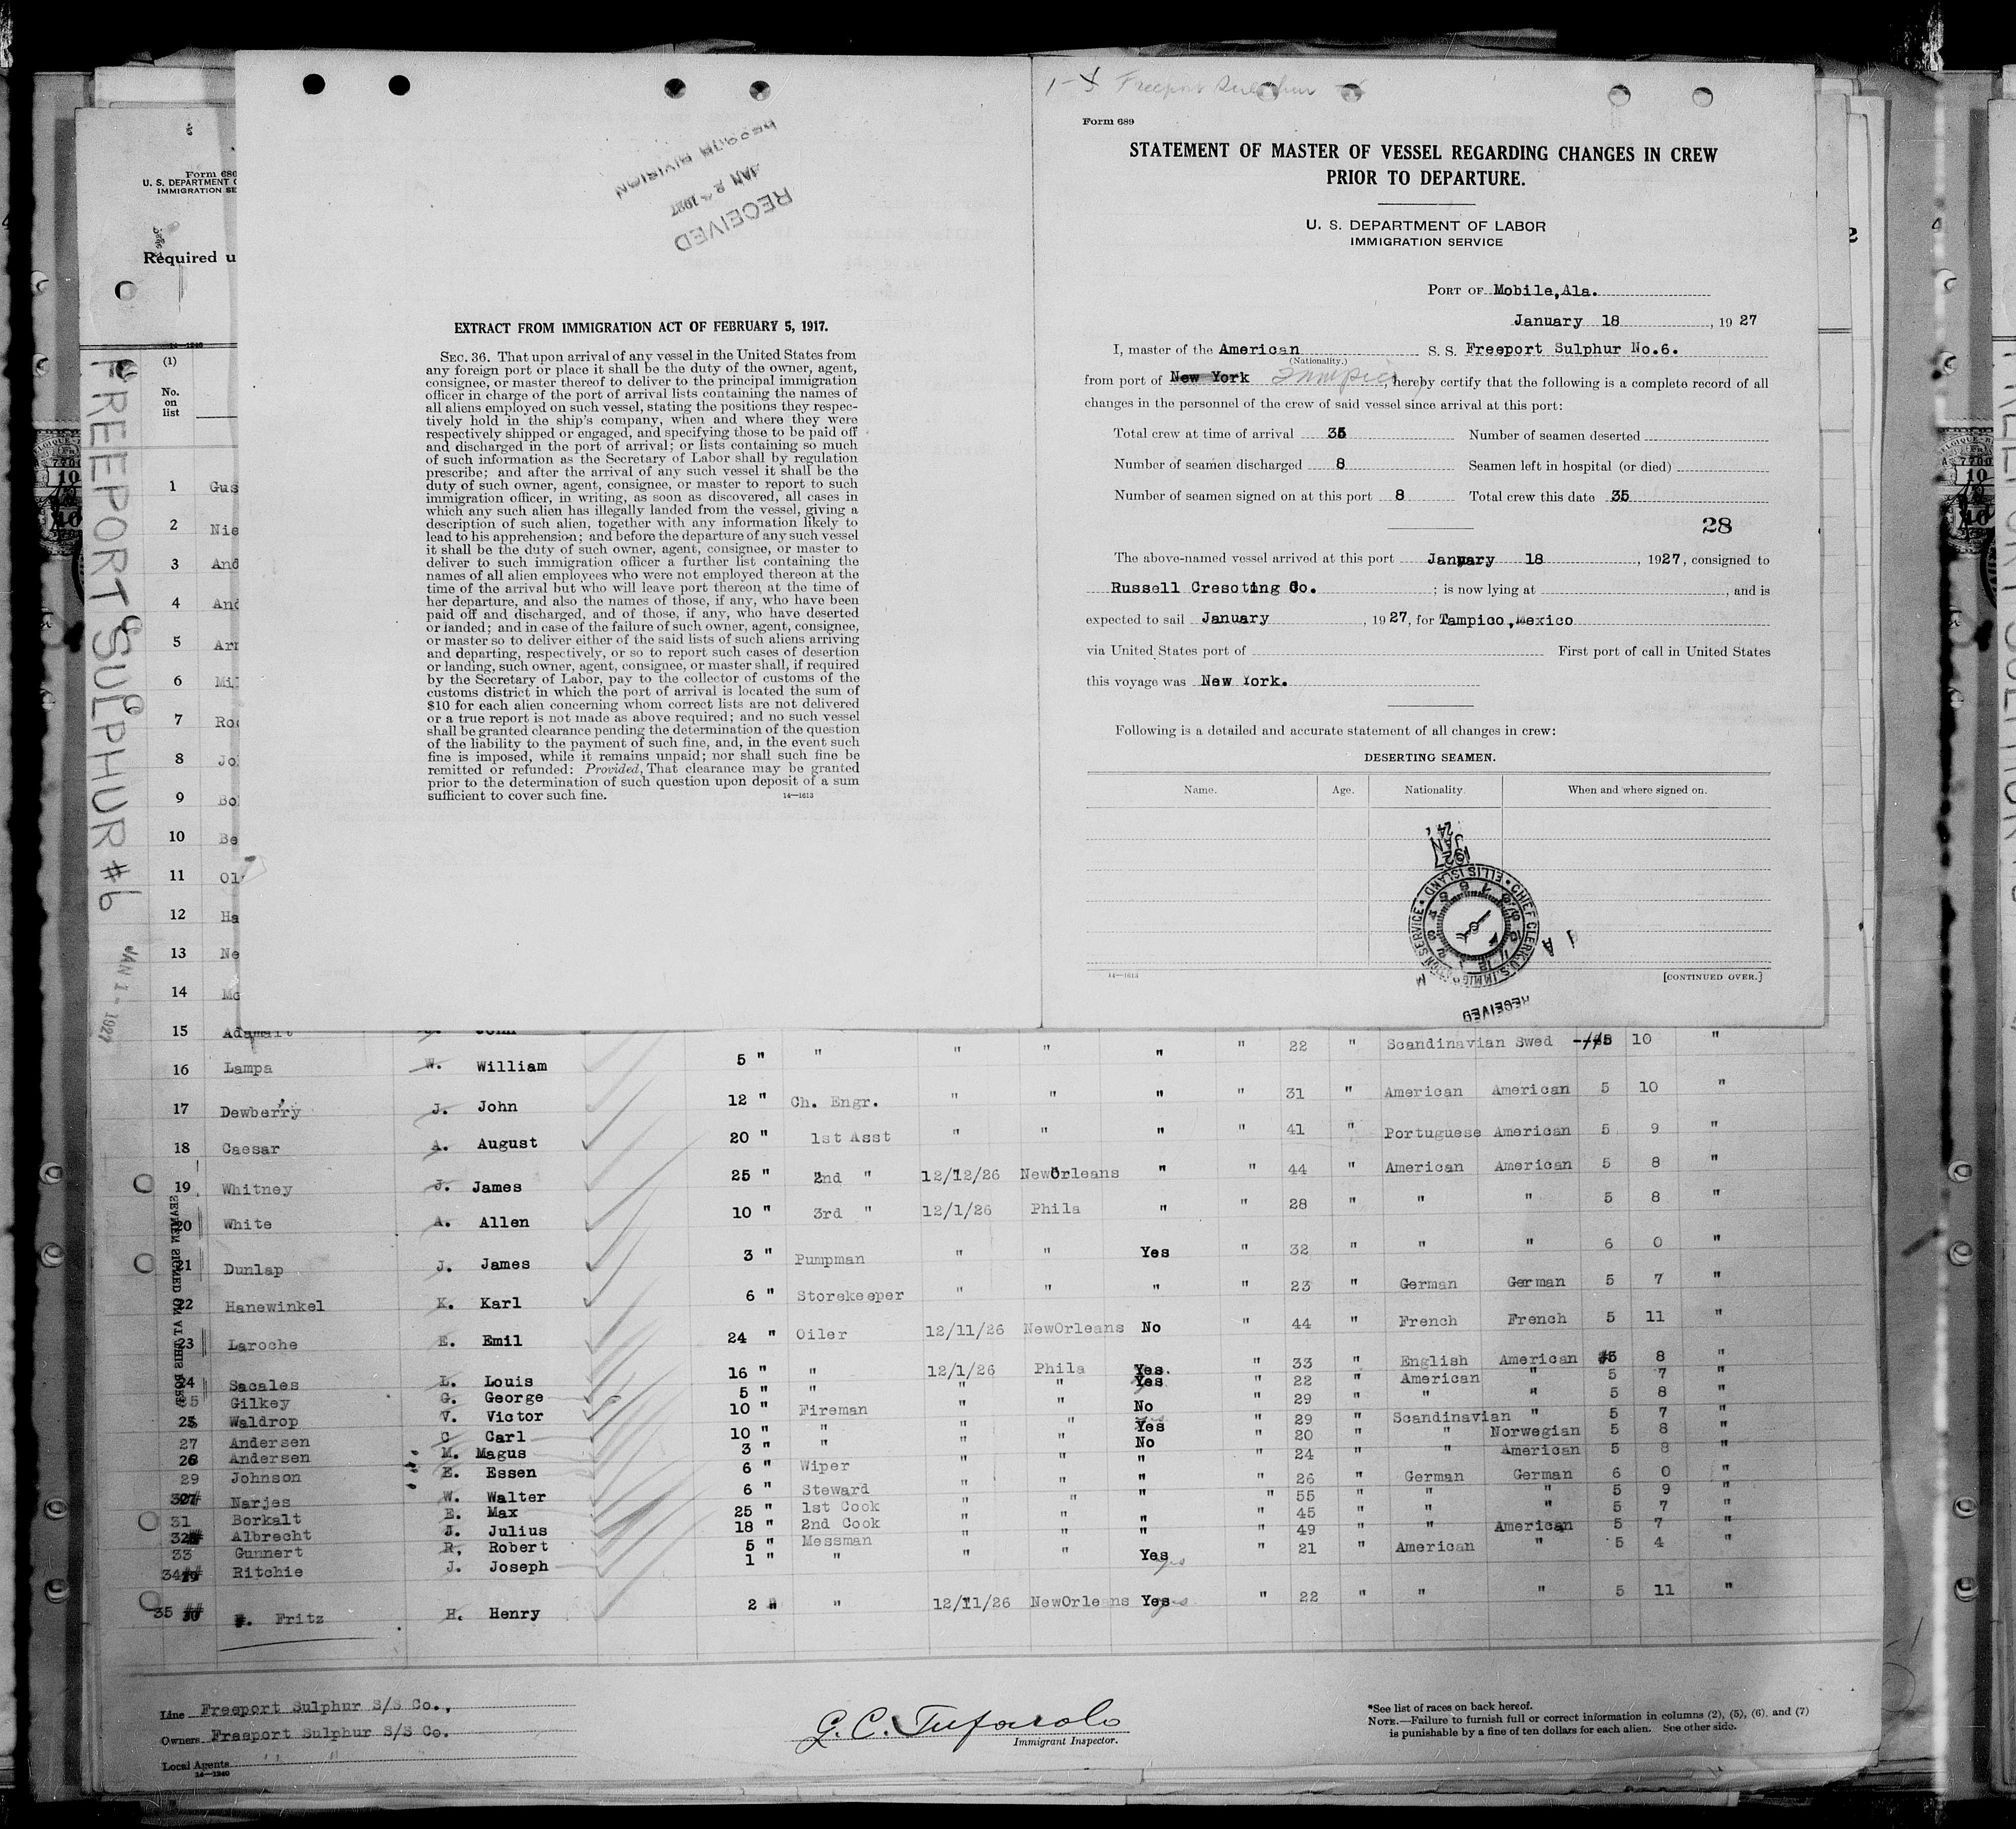 1-
Freeport Sulphur
Form 689
STATEMENT OF MASTER OF VESSEL REGARDING CHANGES IN CREW
PRIOR TO DEPARTURE.
U. S. DEPARTMENT OF LABOR
IMMIGRATION SERVICE
PORT OF Mobile,Ala.
January 18, 1927
I, master of the American S. S. Freeport Sulphur No.6.
(Nationality.)
from port of New York Tampico, hereby certify that the following is a complete record of all
changes in the personnel of the crew of said vessel since arrival at this port:
Total crew at time of arrival 35 Number of seamen deserted
Number of seamen discharged 8 Seamen left in hospital (or died)
Number of seamen signed on at this port 8 Total crew this date 35
28
The above-named vessel arrived at this port January 18, 1927, consigned to
Russell Cresoting Co. ; is now lying at , and is
expected to sail January , 1927, for Tampico,Mexico
via United States port of First port of call in United States
this voyage was New York.
Following is a detailed and accurate statement of all changes in crew:
DESERTING SEAMEN.
Name. Age. Nationality. When and where signed on.
1927 JAN 24
CHIEF CLERK U.S. IMMIGRATION SERVICE • ELLIS ISLAND •
RECEIVED
14—1613
[CONTINUED OVER.]
RECEIVED
JAN 2 1927
RECORD DIVISION
EXTRACT FROM IMMIGRATION ACT OF FEBRUARY 5, 1917.
SEC. 36. That upon arrival of any vessel in the United States from
any foreign port or place it shall be the duty of the owner, agent,
consignee, or master thereof to deliver to the principal immigration
officer in charge of the port of arrival lists containing the names of
all aliens employed on such vessel, stating the positions they respec-
tively hold in the ship's company, when and where they were
respectively shipped or engaged, and specifying those to be paid off
and discharged in the port of arrival; or lists containing so much
of such information as the Secretary of Labor shall by regulation
prescribe; and after the arrival of any such vessel it shall be the
duty of such owner, agent, consignee, or master to report to such
immigration officer, in writing, as soon as discovered, all cases in
which any such alien has illegally landed from the vessel, giving a
description of such alien, together with any information likely to
lead to his apprehension; and before the departure of any such vessel
it shall be the duty of such owner, agent, consignee, or master to
deliver to such immigration officer a further list containing the
names of all alien employees who were not employed thereon at the
time of the arrival but who will leave port thereon at the time of
her departure, and also the names of those, if any, who have been
paid off and discharged, and of those, if any, who have deserted
or landed; and in case of the failure of such owner, agent, consignee,
or master so to deliver either of the said lists of such aliens arriving
and departing, respectively, or so to report such cases of desertion
or landing, such owner, agent, consignee, or master shall, if required
by the Secretary of Labor, pay to the collector of customs of the
customs district in which the port of arrival is located the sum of
$10 for each alien concerning whom correct lists are not delivered
or a true report is not made as above required; and no such vessel
shall be granted clearance pending the determination of the question
of the liability to the payment of such fine, and, in the event such
fine is imposed, while it remains unpaid; nor shall such fine be
remitted or refunded: Provided, That clearance may be granted
prior to the determination of such question upon deposit of a sum
sufficient to cover such fine.
14—1613
Form 680
U. S. DEPARTMENT
IMMIGRATION SE
Required u
14—1240
(1)
No.
on
list
FREEPORT SULPHUR #6
JAN 1 - 1927
SEAMEN SIGNED ON AT THIS PORT
1 Gus
2 Nie
3 And
4 And
5 Arr
6 Mil
7 Ro
8 Jo
9 Bo
10 Be
11 Ol
12 Ha
13 Ne
14 Mc
15 John
16 Lampa W. William 5 " " " " " " 22 " Scandinavian Swed 10 "
17 Dewberry J. John 12 " Ch. Engr. " " " " 31 " American American 5 10 "
18 Caesar A. August 20 " 1st Asst " " " " 41 " Portuguese American 5 9 "
19 Whitney J. James 25 " 2nd " 12/12/26 NewOrleans " " 44 " American American 5 8 "
20 White A. Allen 10 " 3rd " 12/1/26 Phila " " 28 " " " 5 8 "
21 Dunlap J. James 3 " Pumpman " " Yes " 32 " " " 6 0 "
22 Hanewinkel K. Karl 6 " Storekeeper " " " " 23 " German German 5 7 "
23 Laroche E. Emil 24 " Oiler 12/11/26 NewOrleans No " 44 " French French 5 11 "
24 Sacales L. Louis 16 " " 12/1/26 Phila Yes " 33 " English American 5 8 "
25 Gilkey G. George 5 " " " " Yes " 22 " American " 5 7 "
Waldrop V. Victor 10 " Fireman " " No " 29 " " " 5 8 "
27 Andersen C Carl 10 " " " " Yes " 29 " Scandinavian " 5 7 "
28 Andersen M. Magus 3 " " " " No " 20 " " Norwegian 5 8 "
29 Johnson E. Essen 6 " Wiper " " " " 24 " " American 5 8 "
30 Narjes W. Walter 6 " Steward " " " " 26 " German German 6 0 "
31 Borkalt E. Max 25 " 1st Cook " " " " 55 " " " 5 9 "
32 Albrecht J. Julius 18 " 2nd Cook " " " " 45 " " " 5 7 "
33 Gunnert R, Robert 5 " Messman " " " " 49 " " American 5 7 "
34 Ritchie J. Joseph 1 " " " " Yes " 21 " American " 5 4 "
35 Fritz H. Henry 2 " " 12/11/26 NewOrleans Yes " 22 " " " 5 11 "
Line Freeport Sulphur S/S Co.,
Owners Freeport Sulphur S/S Co.
Local Agents " "
14—1240
G. C. Tufarolo
Immigrant Inspector.
*See list of races on back hereof.
NOTE.—Failure to furnish full or correct information in columns (2), (5), (6), and (7)
is punishable by a fine of ten dollars for each alien. See other side.